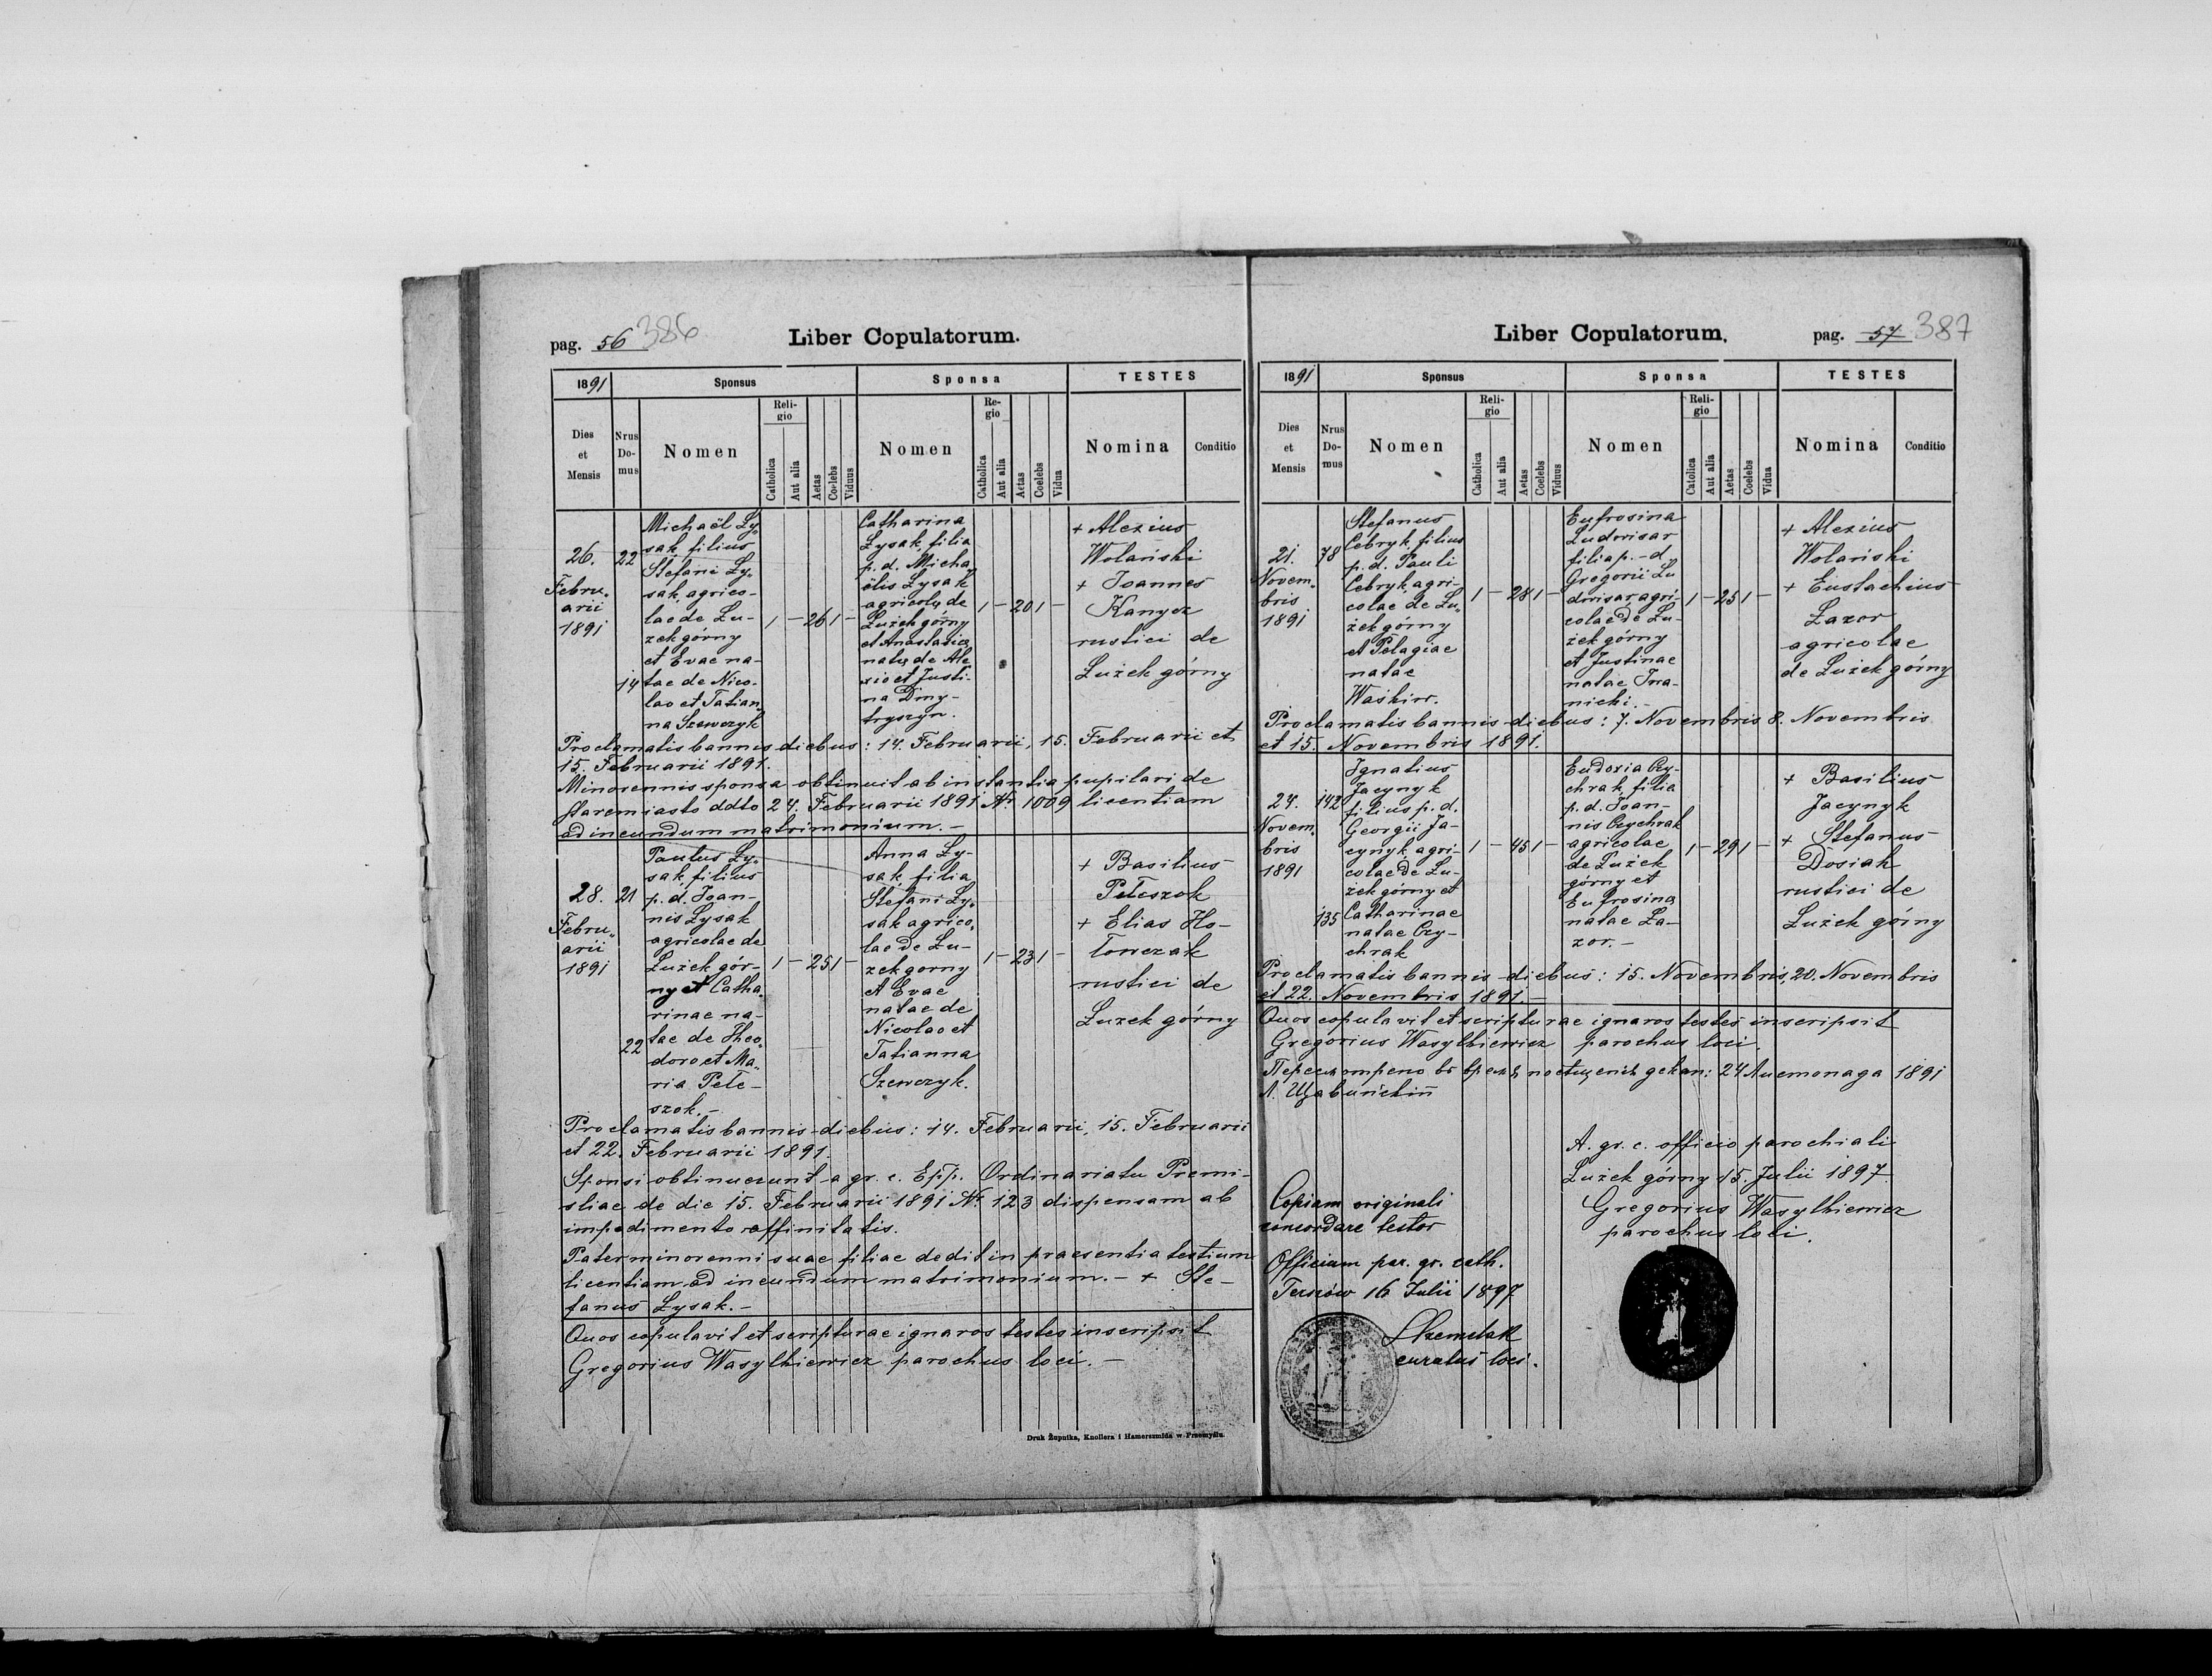 pag. 56 386
Liber Copulatorum.
1891
Sponsus
Sponsa
TESTES
Dies et Mensis
Nrus Domus
Nomen
Religio
Catholica
Aut alia
Aetas
Coelebs
Viduus
Nomen
Regio
Catholica
Aut alia
Aetas
Coelebs
Vidua
Nomina
Conditio
26.
Febru„
arii
1891
22
14
Michaël Ły„
sak, filius
Stefani Ły„
sak, agrico-
lae de Łu-
żek górny
et Evae na-
tae de Nico-
lao et Tatian„
na Szewczyk
1 — 26 1 —
Catharina
Łysak, filia
p. d. Micha„
ëlis Łysak
agricolę de
Łużek górny
et Anastasiae
natę de Ale
xio et Justi-
na Dmy-
tryszyn.
1 — 20 1 —
+ Alexius
Wolański
+ Joannes
Kanycz
rustici de
Łużek górny
Proclamatis bannis diebus: 14. Februarii, 15. Februarii et
15. Februarii 1891.
Minorennis sponsa obtinuit ab instantia pupilari de
Staremiasto ddto 24. Februarii 1891 Nr. 1009 licentiam
ad ineundum matrimonium. —
28.
Febru„
arii
1891
21
22
Paulus Ły„
sak, filius
p. d. Joan-
nis Łysak
agricolae de
Łużek gór-
ny et Catha„
rinae na-
tae de Theo„
doro et Ma„
ria Pełe-
szok. —
1 — 25 1 —
Anna Ły-
sak, filia
Stefani Ły„
sak agrico„
lae de Łu-
żek gorny
et Evae
natae de
Nicolao et
Tatianna
Szewczyk.
1 — 23 1 —
+ Basilius
Pełeszok
+ Elias Ho-
łowczak
rustici de
Łużek górny
Proclamatis bannis diebus: 14. Februarii, 15. Februarii
et 22. Februarii 1891.
Sponsi obtinuerunt a gr. c. Epp. Ordinariatu Premi-
sliae de die 15. Februarii 1891 Nr. 123 dispensam ab
impedimento affinitatis.
Pater minorenni suae filiae dedit in praesentia testium
licentiam ad ineundum matrimonium. — + Ste-
fanus Łysak. —
Quos copulavit et scripturae ignaros testes inscripsit
Gregorius Wasylkiewicz parochus loci. —
Druk Żupnika, Knollera i Hamerszmida w Przemyślu.
Liber Copulatorum.
pag. 57 387
1891
Sponsus
Sponsa
TESTES
Dies et Mensis
Nrus Domus
Nomen
Religio
Catholica
Aut alia
Aetas
Coelebs
Viduus
Nomen
Religio
Catolica
Aut alia
Aetas
Coelebs
Vidua
Nomina
Conditio
21.
Novem„
bris
1891
78
Stefanus
Cebryk, filius
p. d. Pauli
Cebryk, agri-
colae de Łu„
żek górny
et Pelagiae
natae
Waśkiw.
1 — 28 1 —
Eufrosina
Ludwisar
filia p. d.
Gregorii Lu
dwisar, agri-
colae de Łu-
żek górny
et Justinae
natae Iva-
nicki. —
1 — 25 1 —
+ Alexius
Wolański
+ Eustachius
Łazor
agricolae
de Łużek górny
Proclamatis bannis diebus: 7. Novembris 8. Novembris
et 15. Novembris 1891.
24.
Novem„
bris
1891
142
135
Ignatius
Jacynyk
filius p. d.
Georgii Ja-
cynyk, agri-
colae de Łu-
żek górny et
Catharinae
natae Czy-
chrak
1 — 45 1 —
Eudoxia Czy-
chrak, filia
p. d. Joan-
nis Czychrak
agricolae
de Łużek
górny et
Eufrosina
natae Ła-
zor. —
1 — 29 1 —
+ Basilius
Jacynyk
+ Stefanus
Dosiak
rustici de
Łużek górny
Proclamatis bannis diebus: 15. Novembris, 20. Novembris
et 22. Novembris 1891. —
Quos copulavit et scripturae ignaros testes inscripsit
Gregorius Wasylkiewicz parochus loci.
24 Листопада 1891
A. gr. c. officio parochiali
Łużek górny 15. Julii 1897
Gregorius Wasylkiewicz
parochus loci.
Copiam originali
concordare testor
Officium par. gr. cath.
Terszów 16 Julii 1897
curatus loci.